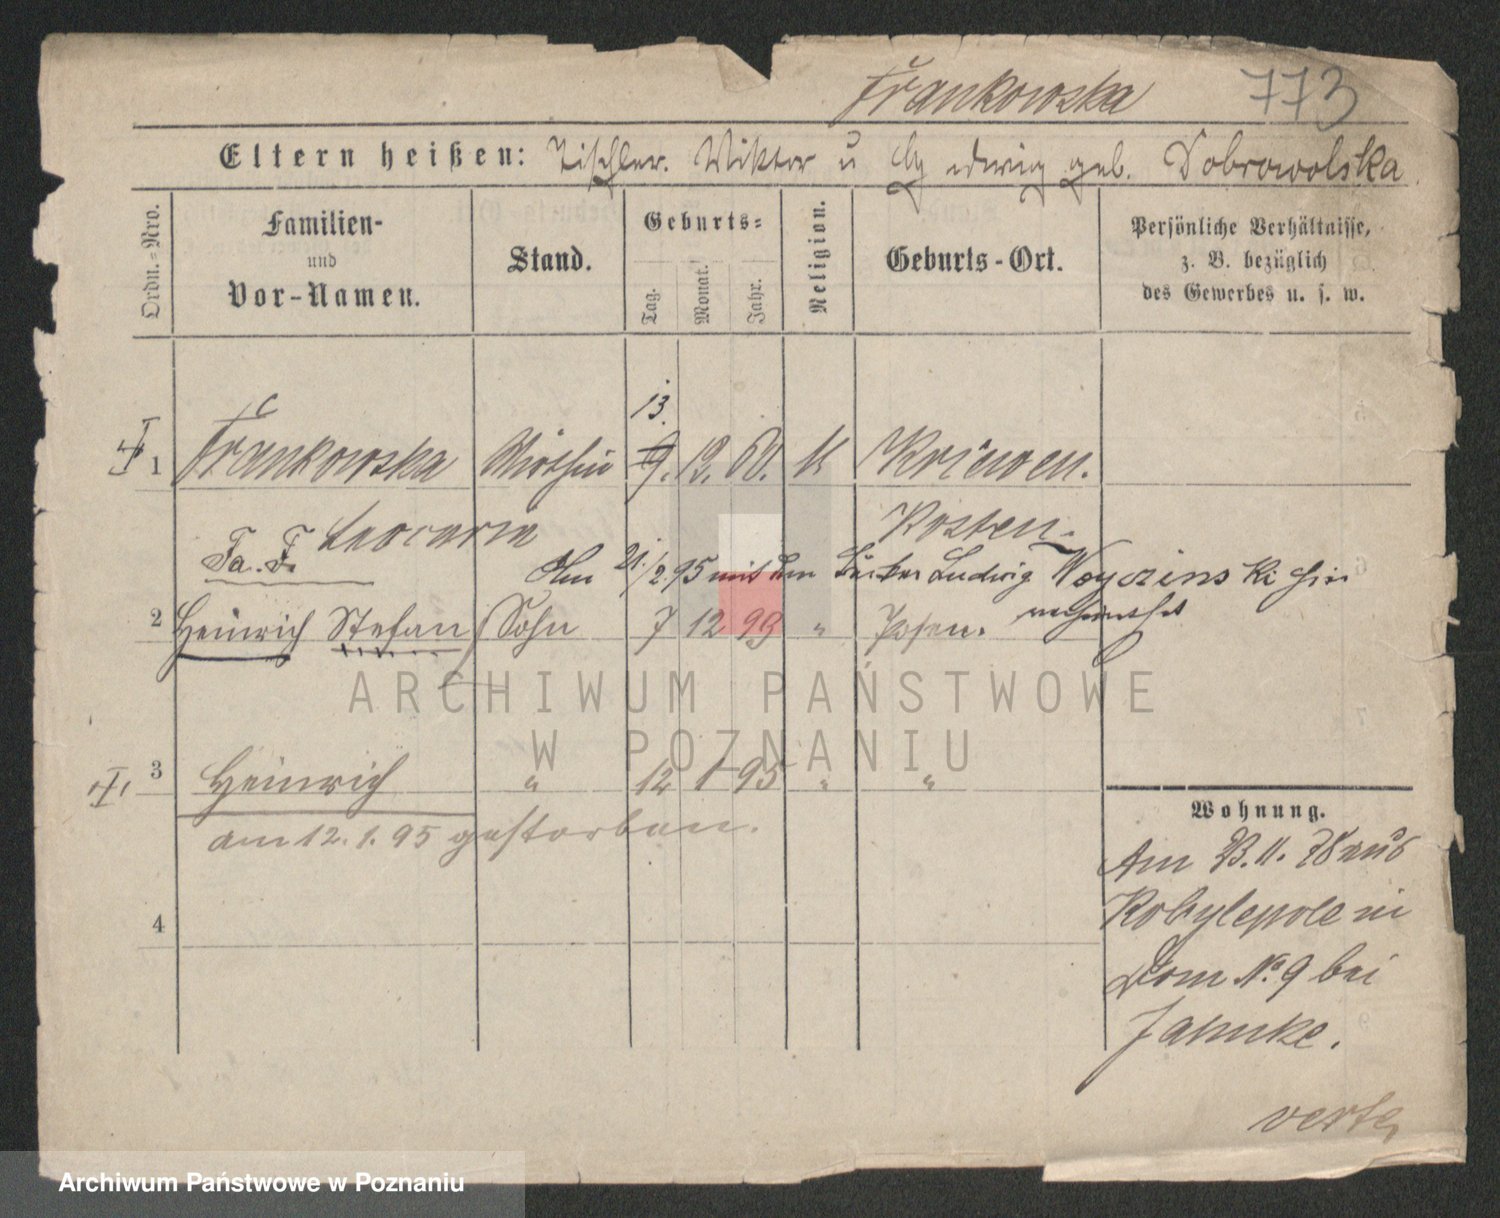 Frankowska 773
Eltern heißen: Tischler. Wiktor u Hedwig geb. Dobrowolska
Ordn.-Nro.
Familien-
und
Vor-Namen.
Stand.
Geburts-
Tag.
Monat.
Jahr.
Religion.
Geburts-Ort.
Persönliche Verhältnisse,
z. B. bezüglich
des Gewerbes u. s. w.
13.
1 Frankowska 9. 12. 60. k Kriewen.
Leocadia Kosten.
Fa. F. Am 21./2. 95 mit dem Bäcker Ludwig Woyczinski hier
verheirathet
2 Heinrich Stefan Sohn 7 12 99 " Posen.
3 Heinrich " 12 1 95 " "
am 12. 1. 95 gestorben.
4
Wohnung.
Am 23. 11. 78 aus
Kobylepole in
Dom No. 9 bei
Jahnke.
verte
ARCHIWUM PAŃSTWOWE
W POZNANIU
Archiwum Państwowe w Poznaniu